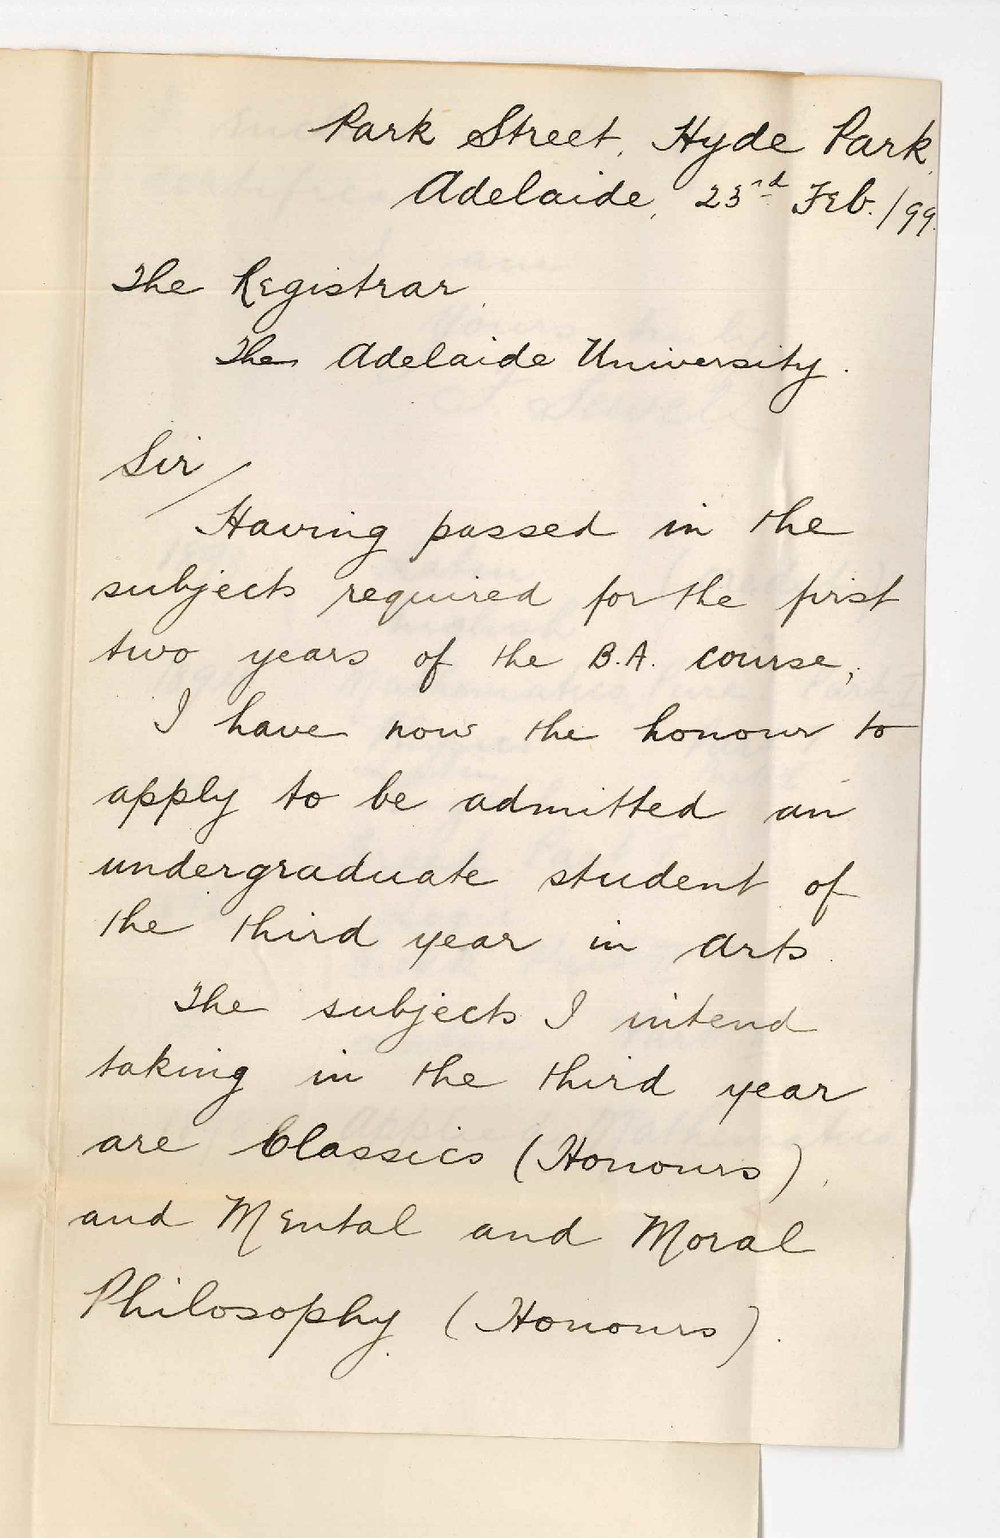 Park Street, Hyde Park,
Adelaide, 23rd Feb./99.
The Registrar,
The Adelaide University.
Sir/
Having passed in the
subjects required for the first
two years of the B.A. course,
I have now the honour to
apply to be admitted an
undergraduate student of
the third year in Arts.
The subjects I intend
taking in the third year
are Classics (Honours),
and Mental and Moral
Philosophy (Honours).